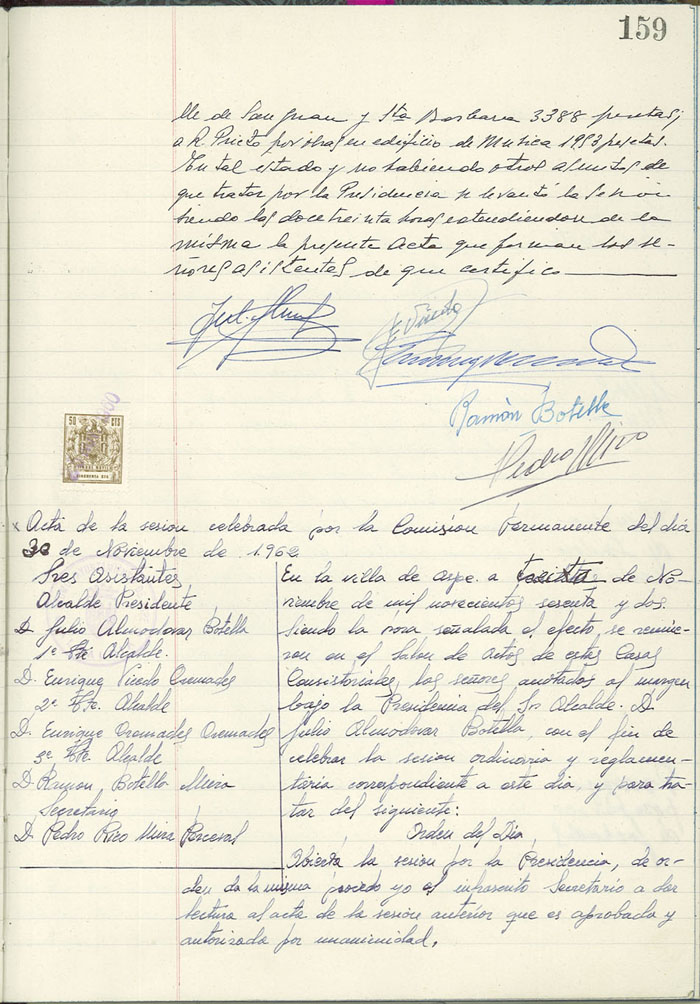 159
lle de San Juan y Sta Barbara 3388 pesetas;
a R. Prieto por obras en edificio de Musica 1953 pesetas.
En tal estado y no habiendo otros asuntos de
que tratar por la Presidencia se levantó la sesion
siendo las doce treinta horas extendiendose de la
misma la presente Acta que forman los se-
ñores asistentes de que certifico
E Vicedo
Ramón Botella
Pedro Rico
50 CTS
Acta de la sesion celebrada por la Comision Permanente del dia
30 de Noviembre de 1.962
Sres Asistentes
Alcalde Presidente
D. Julio Almodovar Botella
1º Tte Alcalde.
D. Enrique Vicedo Cremades
2º Tte. Alcalde
D. Enrique Cremades Cremades
3º Tte. Alcalde
D. Ramon Botella Mira
Secretario
D. Pedro Rico Mira Perceval
En la villa de Aspe a treinta de No-
viembre de mil novecientos sesenta y dos.
Siendo la hora señalada al efecto, se reunie-
ron en el Salon de Actos de estas Casas
Consistoriales, los señores anotados al margen
bajo la Presidencia del Sr Alcalde D.
Julio Almodovar Botella, con el fin de
celebrar la sesion ordinaria y reglamen-
taria correspondiente a este dia, y para tra-
tar del siguiente:
Orden del Dia
Abierta la sesion por la Presidencia, de or-
den de la misma procedo yo el infrascrito Secretario a dar
lectura al acta de la sesion anterior que es aprobada y
autorizada por unanimidad.